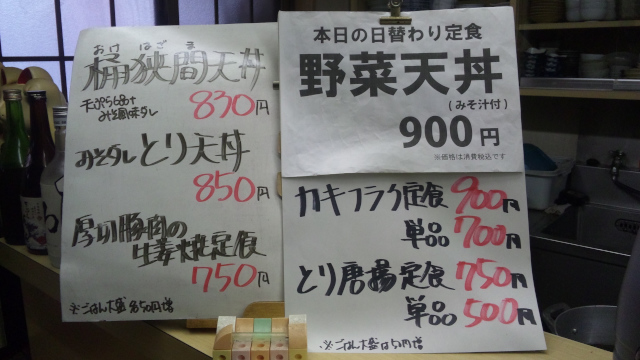 おけ はざま
桶狭間天丼
みそ風味ダレ
830円
みそダレ とり天丼
850円
厚切豚肉の
生姜焼定食
750円
※ごはん大盛
本日の日替わり定食
野菜天丼
(みそ汁付)
900円
カキフライ定食 900円
単品 700円
とり唐揚定食 750円
単品 500円
※ごはん大盛は50円増